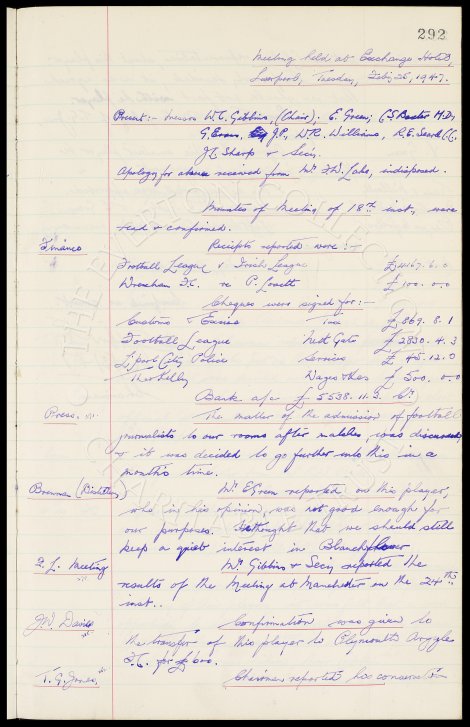 292
Meeting held at Exchange Hotel,
Liverpool, Tuesday, Feby 25, 1947.
Present:- Messrs W.C. Gibbins, (Chair); E. Green; C.S. Baxter M.D;
G. Evans, J.P, W.R. Williams, R.E. Searle CC,
J.C. Sharp & Secy.
Apology for absence received from Mr F.W. Lake, indisposed.
Minutes of Meeting of 18th inst, were
read & confirmed.
Finance Receipts reported were:-
Football League v Irish League £4167. 6. 0
Wrexham F.C. re P. Lovett £100. 0. 0
Cheques were signed for:-
Customs & Excise Tax £869. 8. 1
Football League Nett Gate £2830. 4. 3
L'pool City Police Services £45. 12. 0
Theo Kelly Wages &c £500. 0. 0
Bank a/c £5538. 11. 3. Cr.
Press. The matter of the admission of football
journalists to our rooms after matches, was discussed,
& it was decided to go further into this in a
month's time.
Brennan (Distillery) Mr. E Green reported on this player,
who in his opinion, was not good enough for
our purposes. He thought that we should still
keep a quiet interest in Blanchflower
F.L. Meeting Mr Gibbins & Secy reported the
results of the Meeting at Manchester on the 24th
inst..
J.W. Davies Confirmation was given to
the transfer of this player to Plymouth Argyle
F.C. for £600.
T.G. Jones, Chairman reported his conversation
THE EVERTON COLLECTION